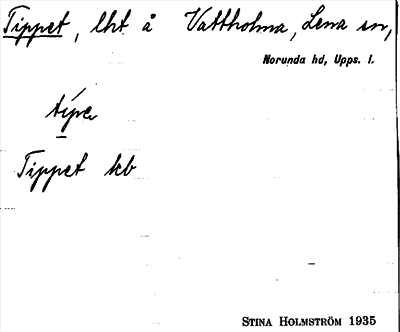 Tippet, lht å Vattholma, Lena sn,
Norunda hd, Upps. l.
típe
Tippet kb
STINA HOLMSTRÖM 1935